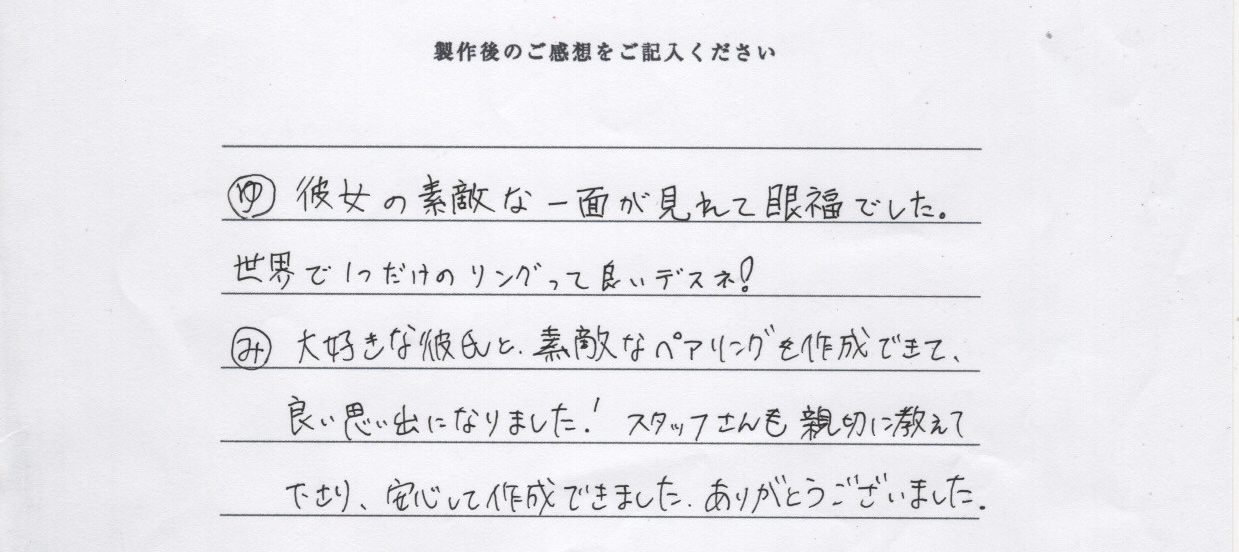 製作後のご感想をご記入ください
ゆ 彼女の素敵な一面が見れて眼福でした。
世界で1つだけのリングって良いデスネ!
み 大好きな彼氏と、素敵なペアリングを作成できて、
良い思い出になりました! スタッフさんも親切に教えて
下さり、安心して作成できました。ありがとうございました。